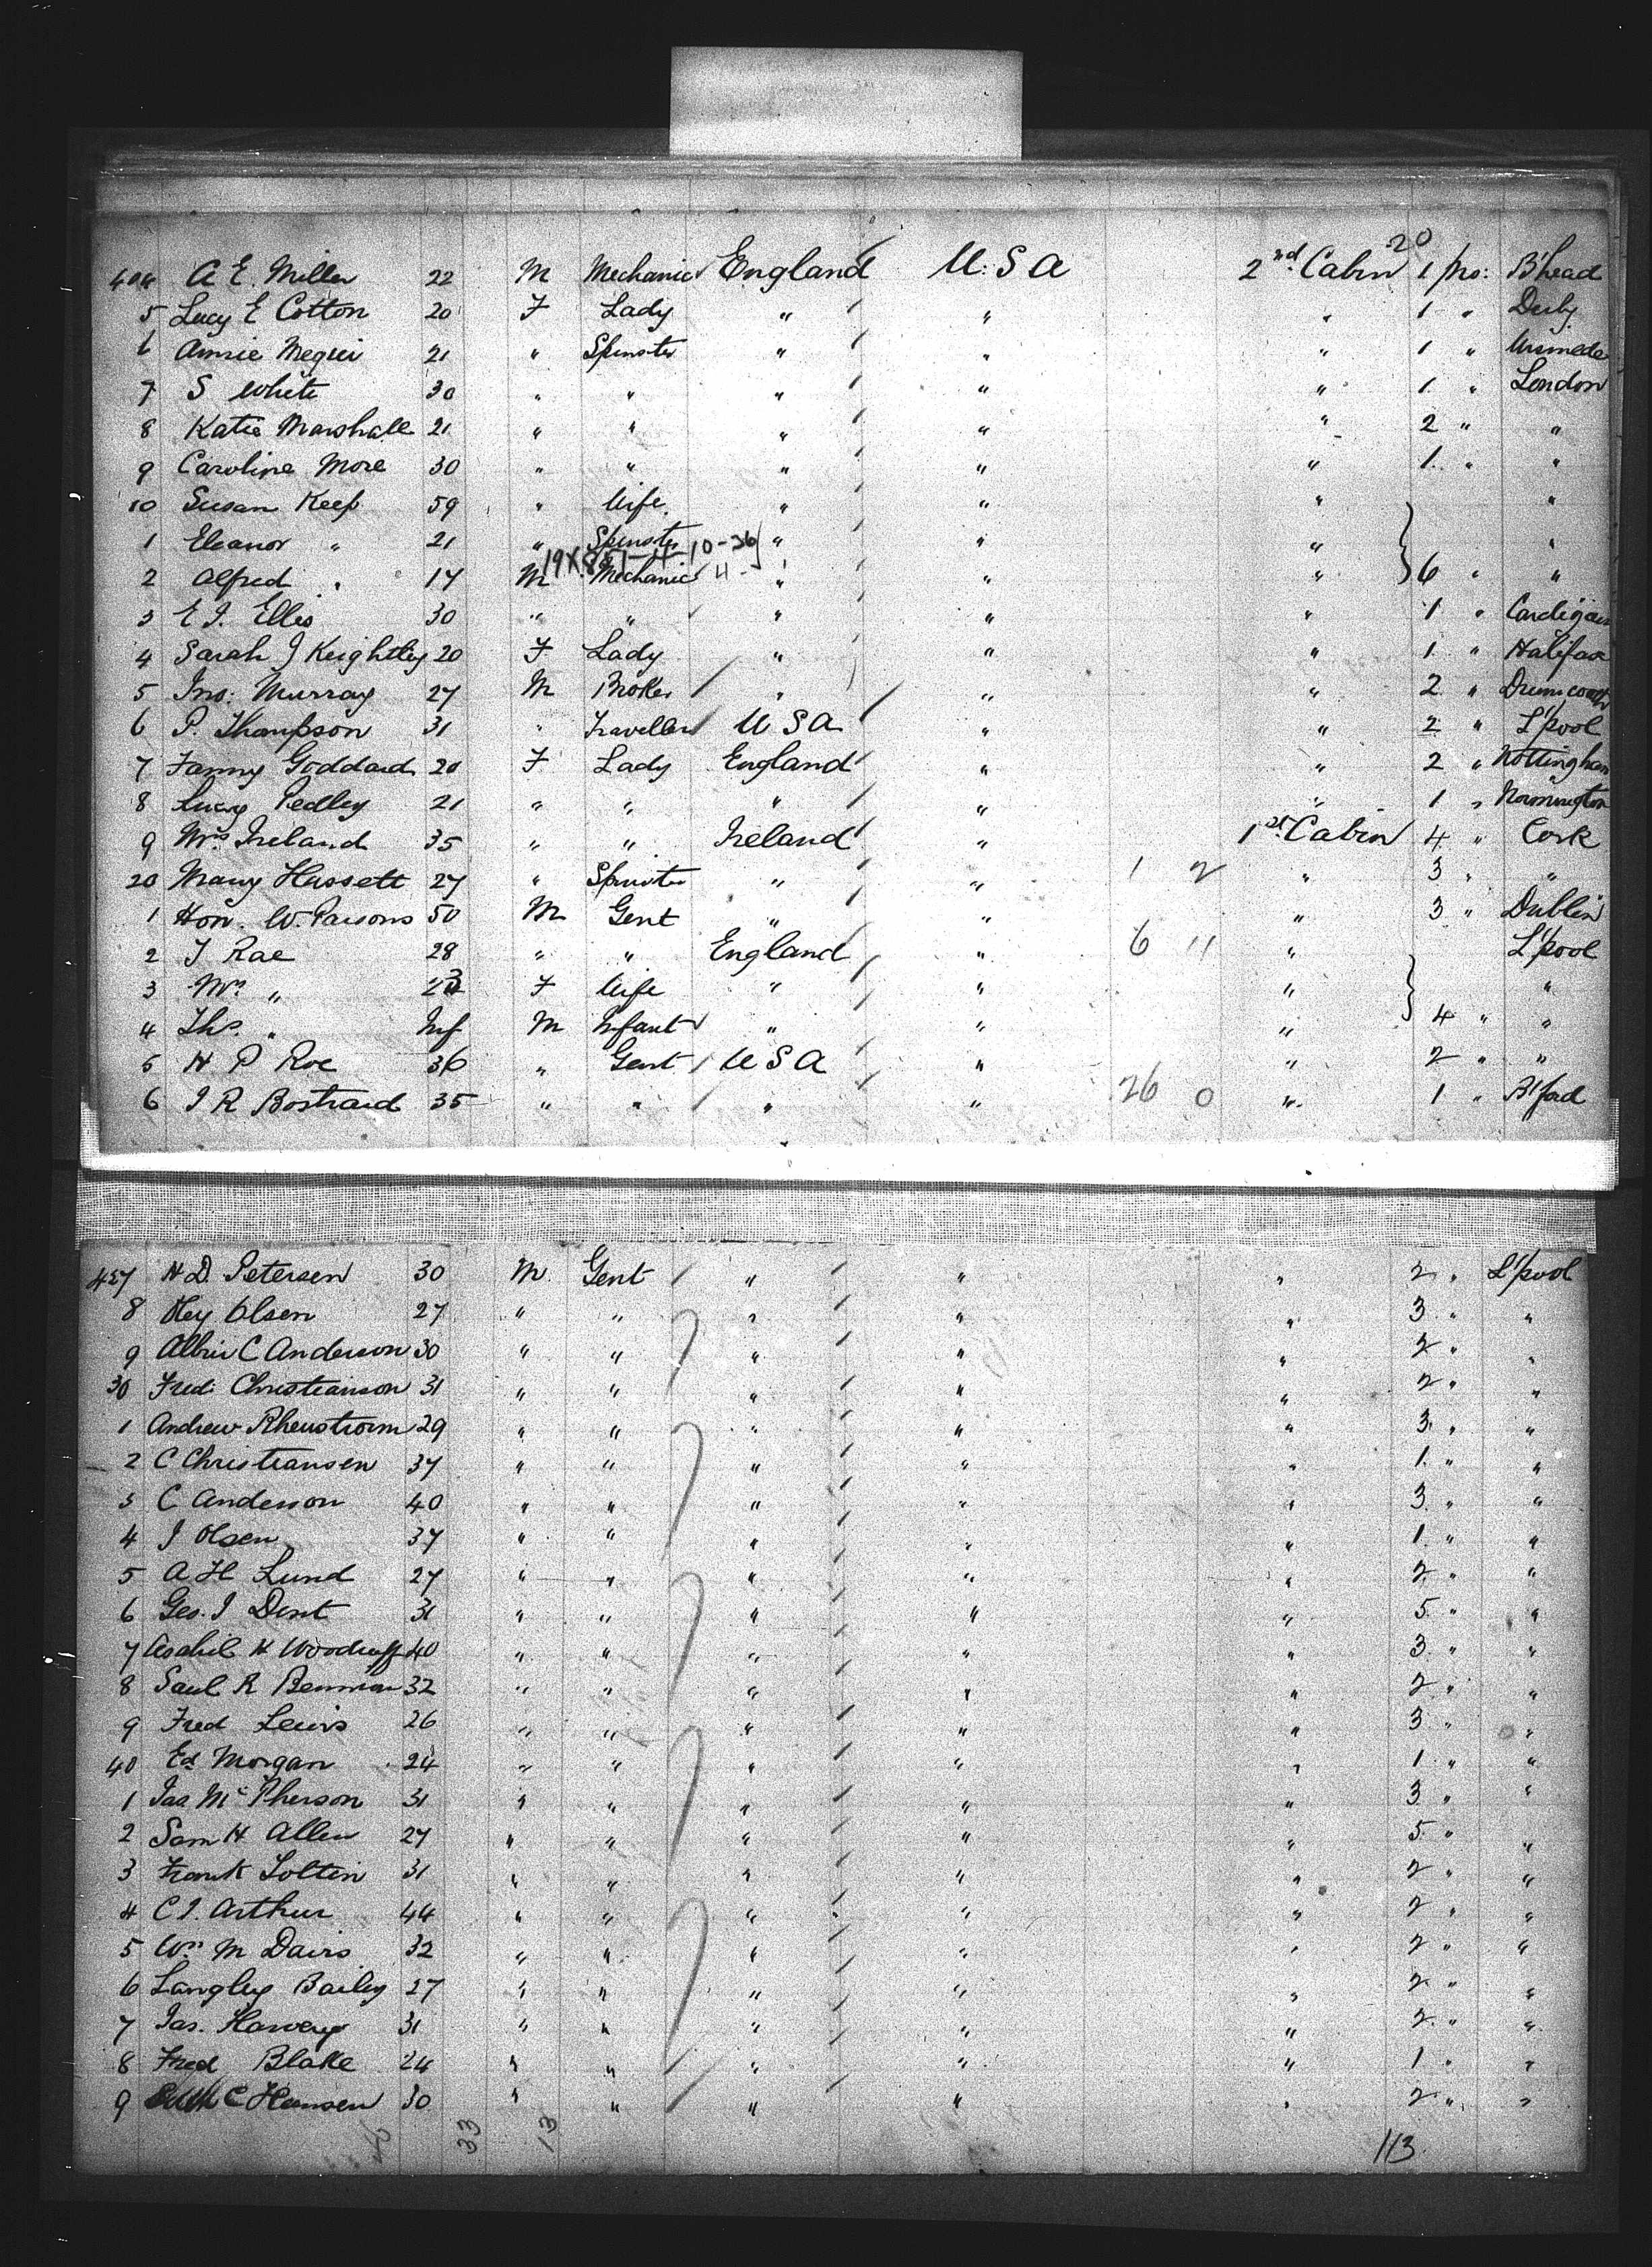 20
404 A E. Miller 22 M Mechanic England U.S.A 2nd Cabin 1 pro: B'head
5 Lucy E Cotton 20 F Lady " " " 1 " Derby
6 Annie Meguei 21 " Spinster " " " 1 "
7 S White 30 " " " " " 1 " London
8 Katie Marshall 21 " " " " " 2 " "
9 Caroline More 30 " " " " " 1 " "
10 Susan Keep 59 " Wife " " " "
1 Eleanor " 21 " Spinster " " " "
19X857-4-10-36
2 Alfred " 17 M Mechanic " " " 6 " "
3 E I. Ellis 30 " " " " " 1 " Cardigan
4 Sarah J Keightley 20 F Lady " " " 1 " Halifax
5 Jno: Murray 27 M Broker " " " 2 "
6 P. Thompson 31 " Traveller U S A " " 2 " L'pool
7 Fanny Goddard 20 F Lady England " " 2 " Nottingham
8 Lucy Pedley 21 " " " " " 1 " Normington
9 Mrs Ireland 35 " " Ireland " 1st Cabin 4 " Cork
20 Mary Hassett 27 " Spinster " " 1 2 " 3 " "
1 Hon. W. Parsons 50 M Gent " " " 3 " Dublin
2 J Rae 28 " " England " 6 11 " L'pool
3 Mrs " 23 F Wife " " " "
4 Ths. " Inf M Infant " " " 4 " "
5 H P Roe 36 " Gent U S A " " 2 " "
6 J R Bostraid 35 " " " " 26 0 " 1 " B'ford
427 H D. Petersen 30 M. Gent " " " 2 " L'pool
8 Hey Olsen 27 " " " " " 3 " "
9 Albin C Anderson 30 " " " " " 2 " "
30 Fred: Christianson 31 " " " " " 2 " "
1 Andrew Rhenstrorm 29 " " " " " 3 " "
2 C Christiansen 37 " " " " " 1 " "
3 C Anderson 40 " " " " " 3 " "
4 J Olsen 37 " " " " " 1 " "
5 A H Lund 27 " " " " " 2 " "
6 Geo. J Dent 31 " " " " " 5 " "
7 Asahil H Woodruff 40 " " " " " 3 " "
8 Saul R Bennion 32 " " " " " 2 " "
9 Fred Lewis 26 " " " " " 3 " "
40 Ed Morgan 24 " " " " " 1 " "
1 Jas McPherson 31 " " " " " 3 " "
2 Sam H Allen 27 " " " " " 5 " "
3 Frank Loltin 31 " " " " " 2 " "
4 C I. Arthur 44 " " " " " 2 " "
5 Wm M Davis 32 " " " " " 2 " "
6 Langley Bailey 27 " " " " " 2 " "
7 Jas. Harvey 31 " " " " " 2 " "
8 Fred Blake 24 " " " " " 1 " "
9 C Hansen 30 " " " " " 2 " "
33 13 113